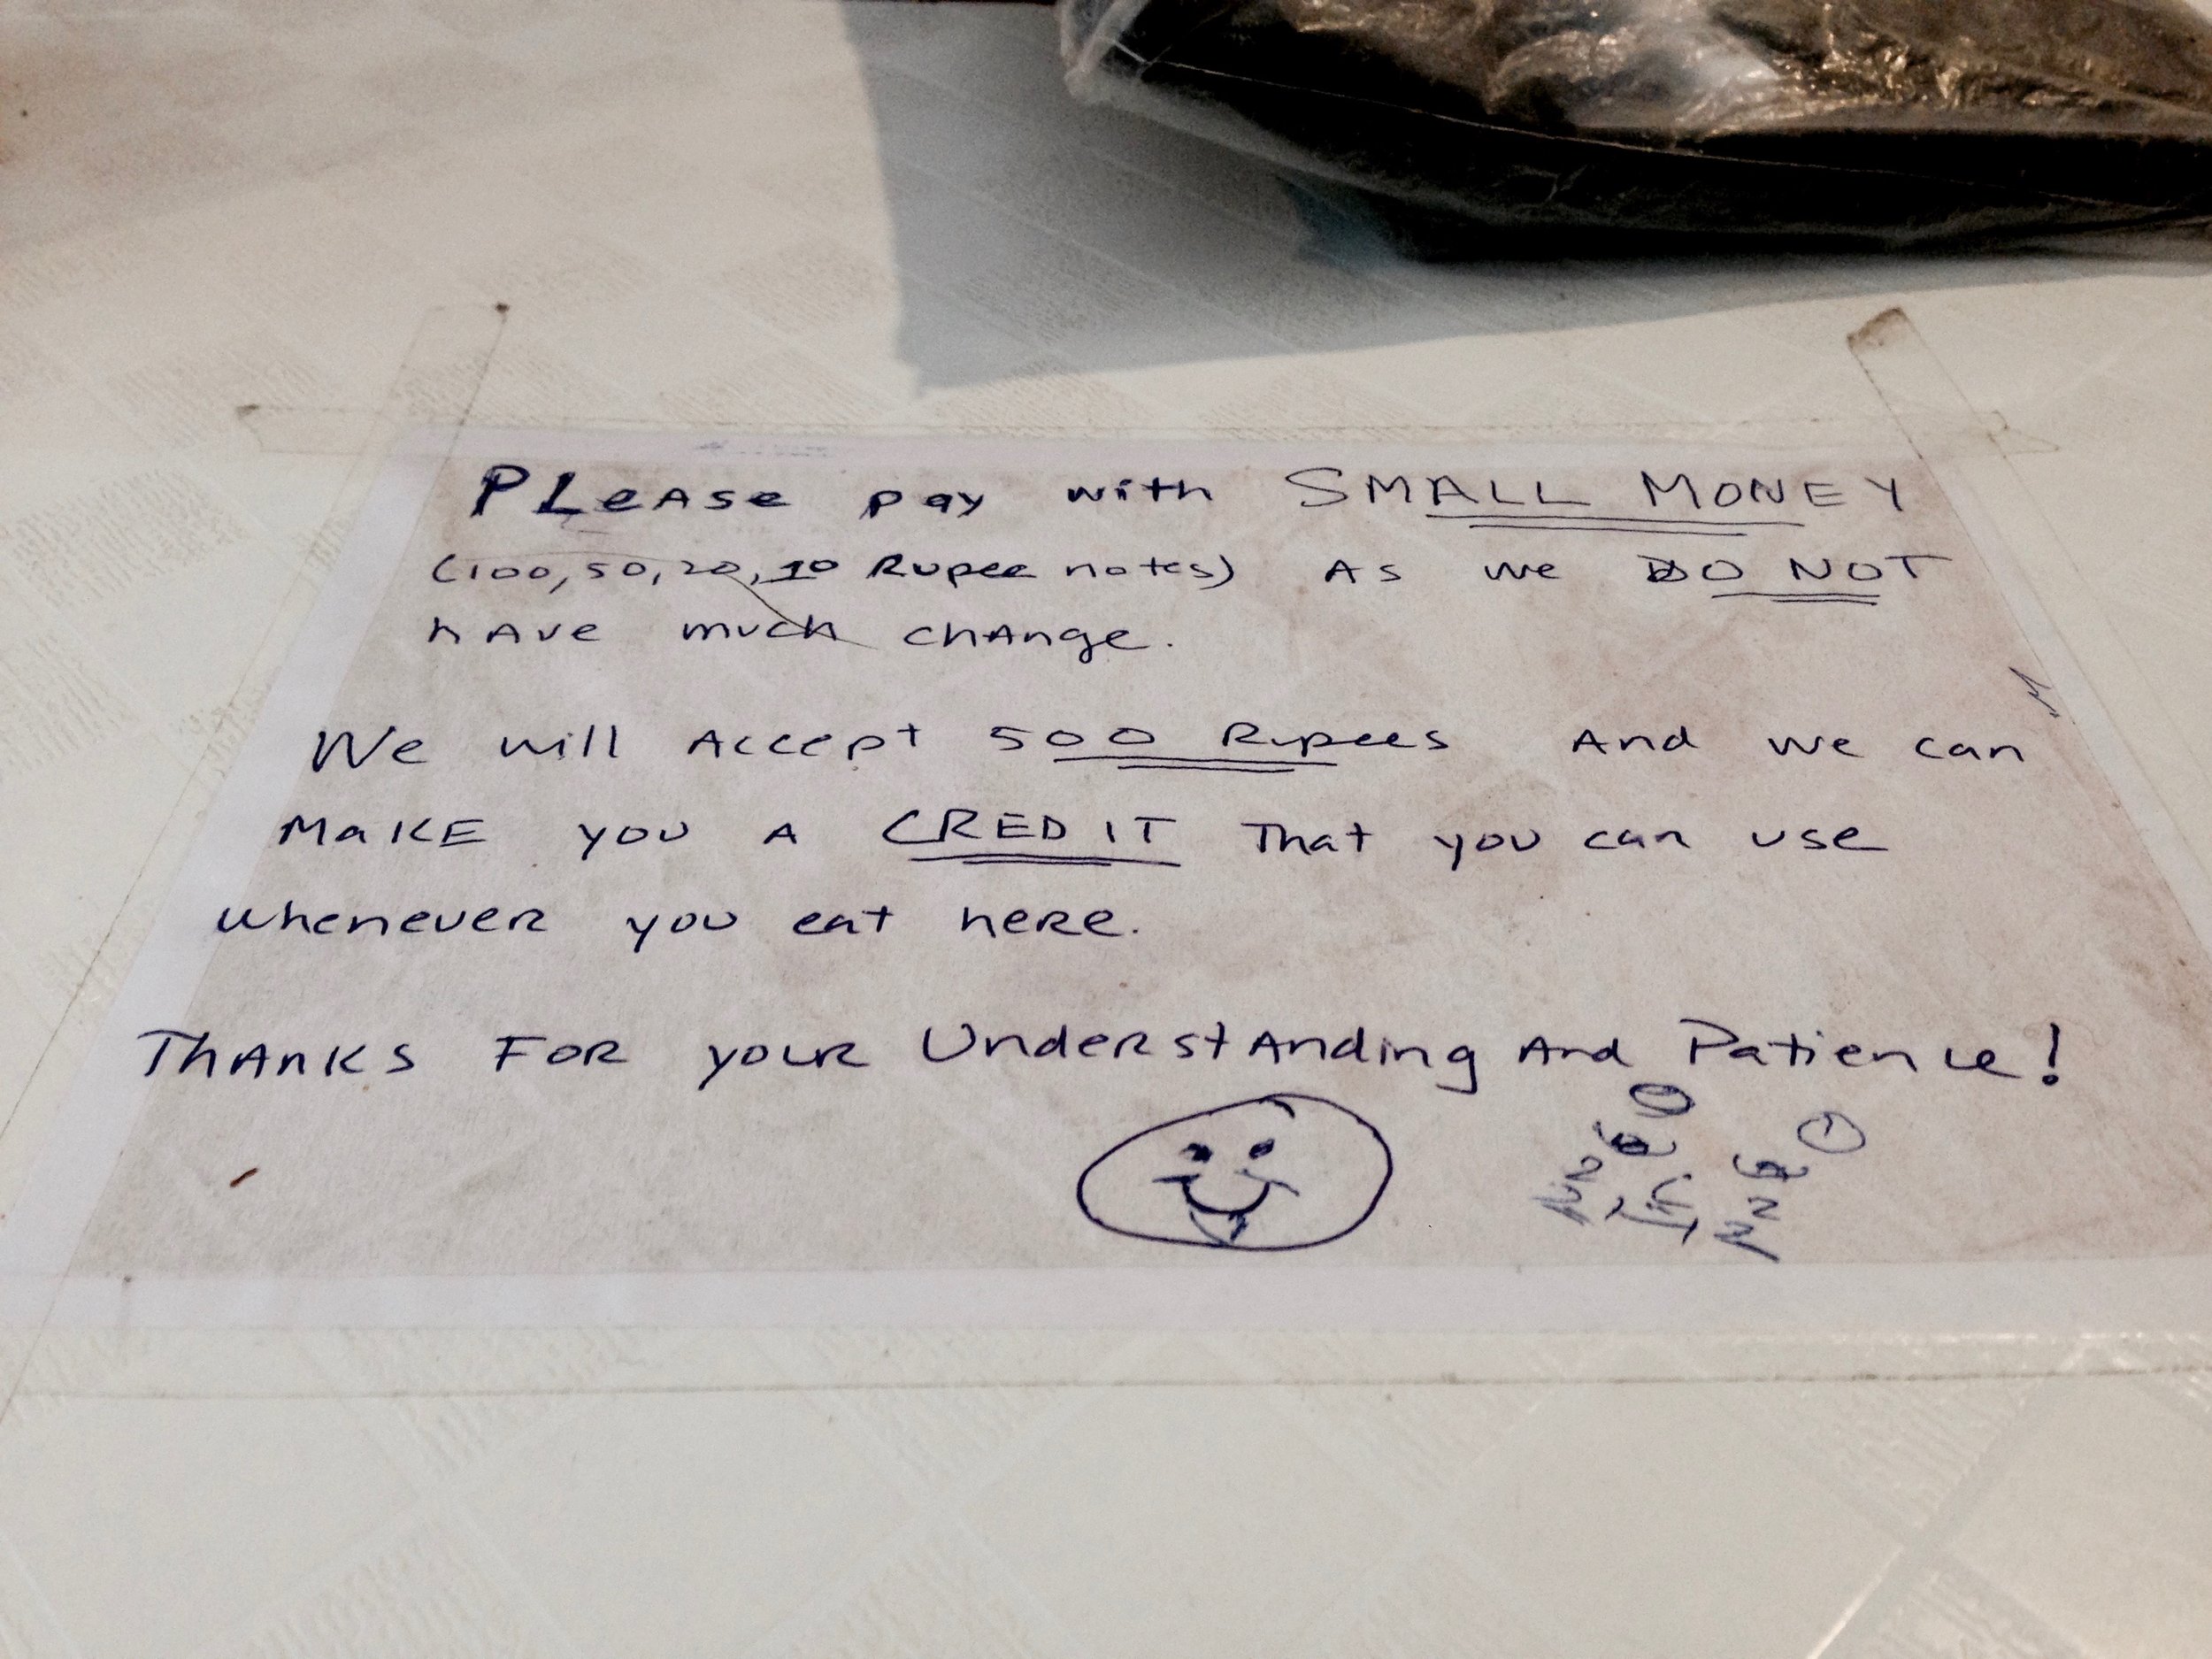 PLeAse pay with SMALL MONEY
(100,50,20,10 Rupee notes) As we DO NOT
hAve much chAnge.
We will Accept 500 Rupees And we can
MaKE you A CREDIT That you can use
whenever you eat here.
ThAnKS FOR your UnderstAnding And Patience!